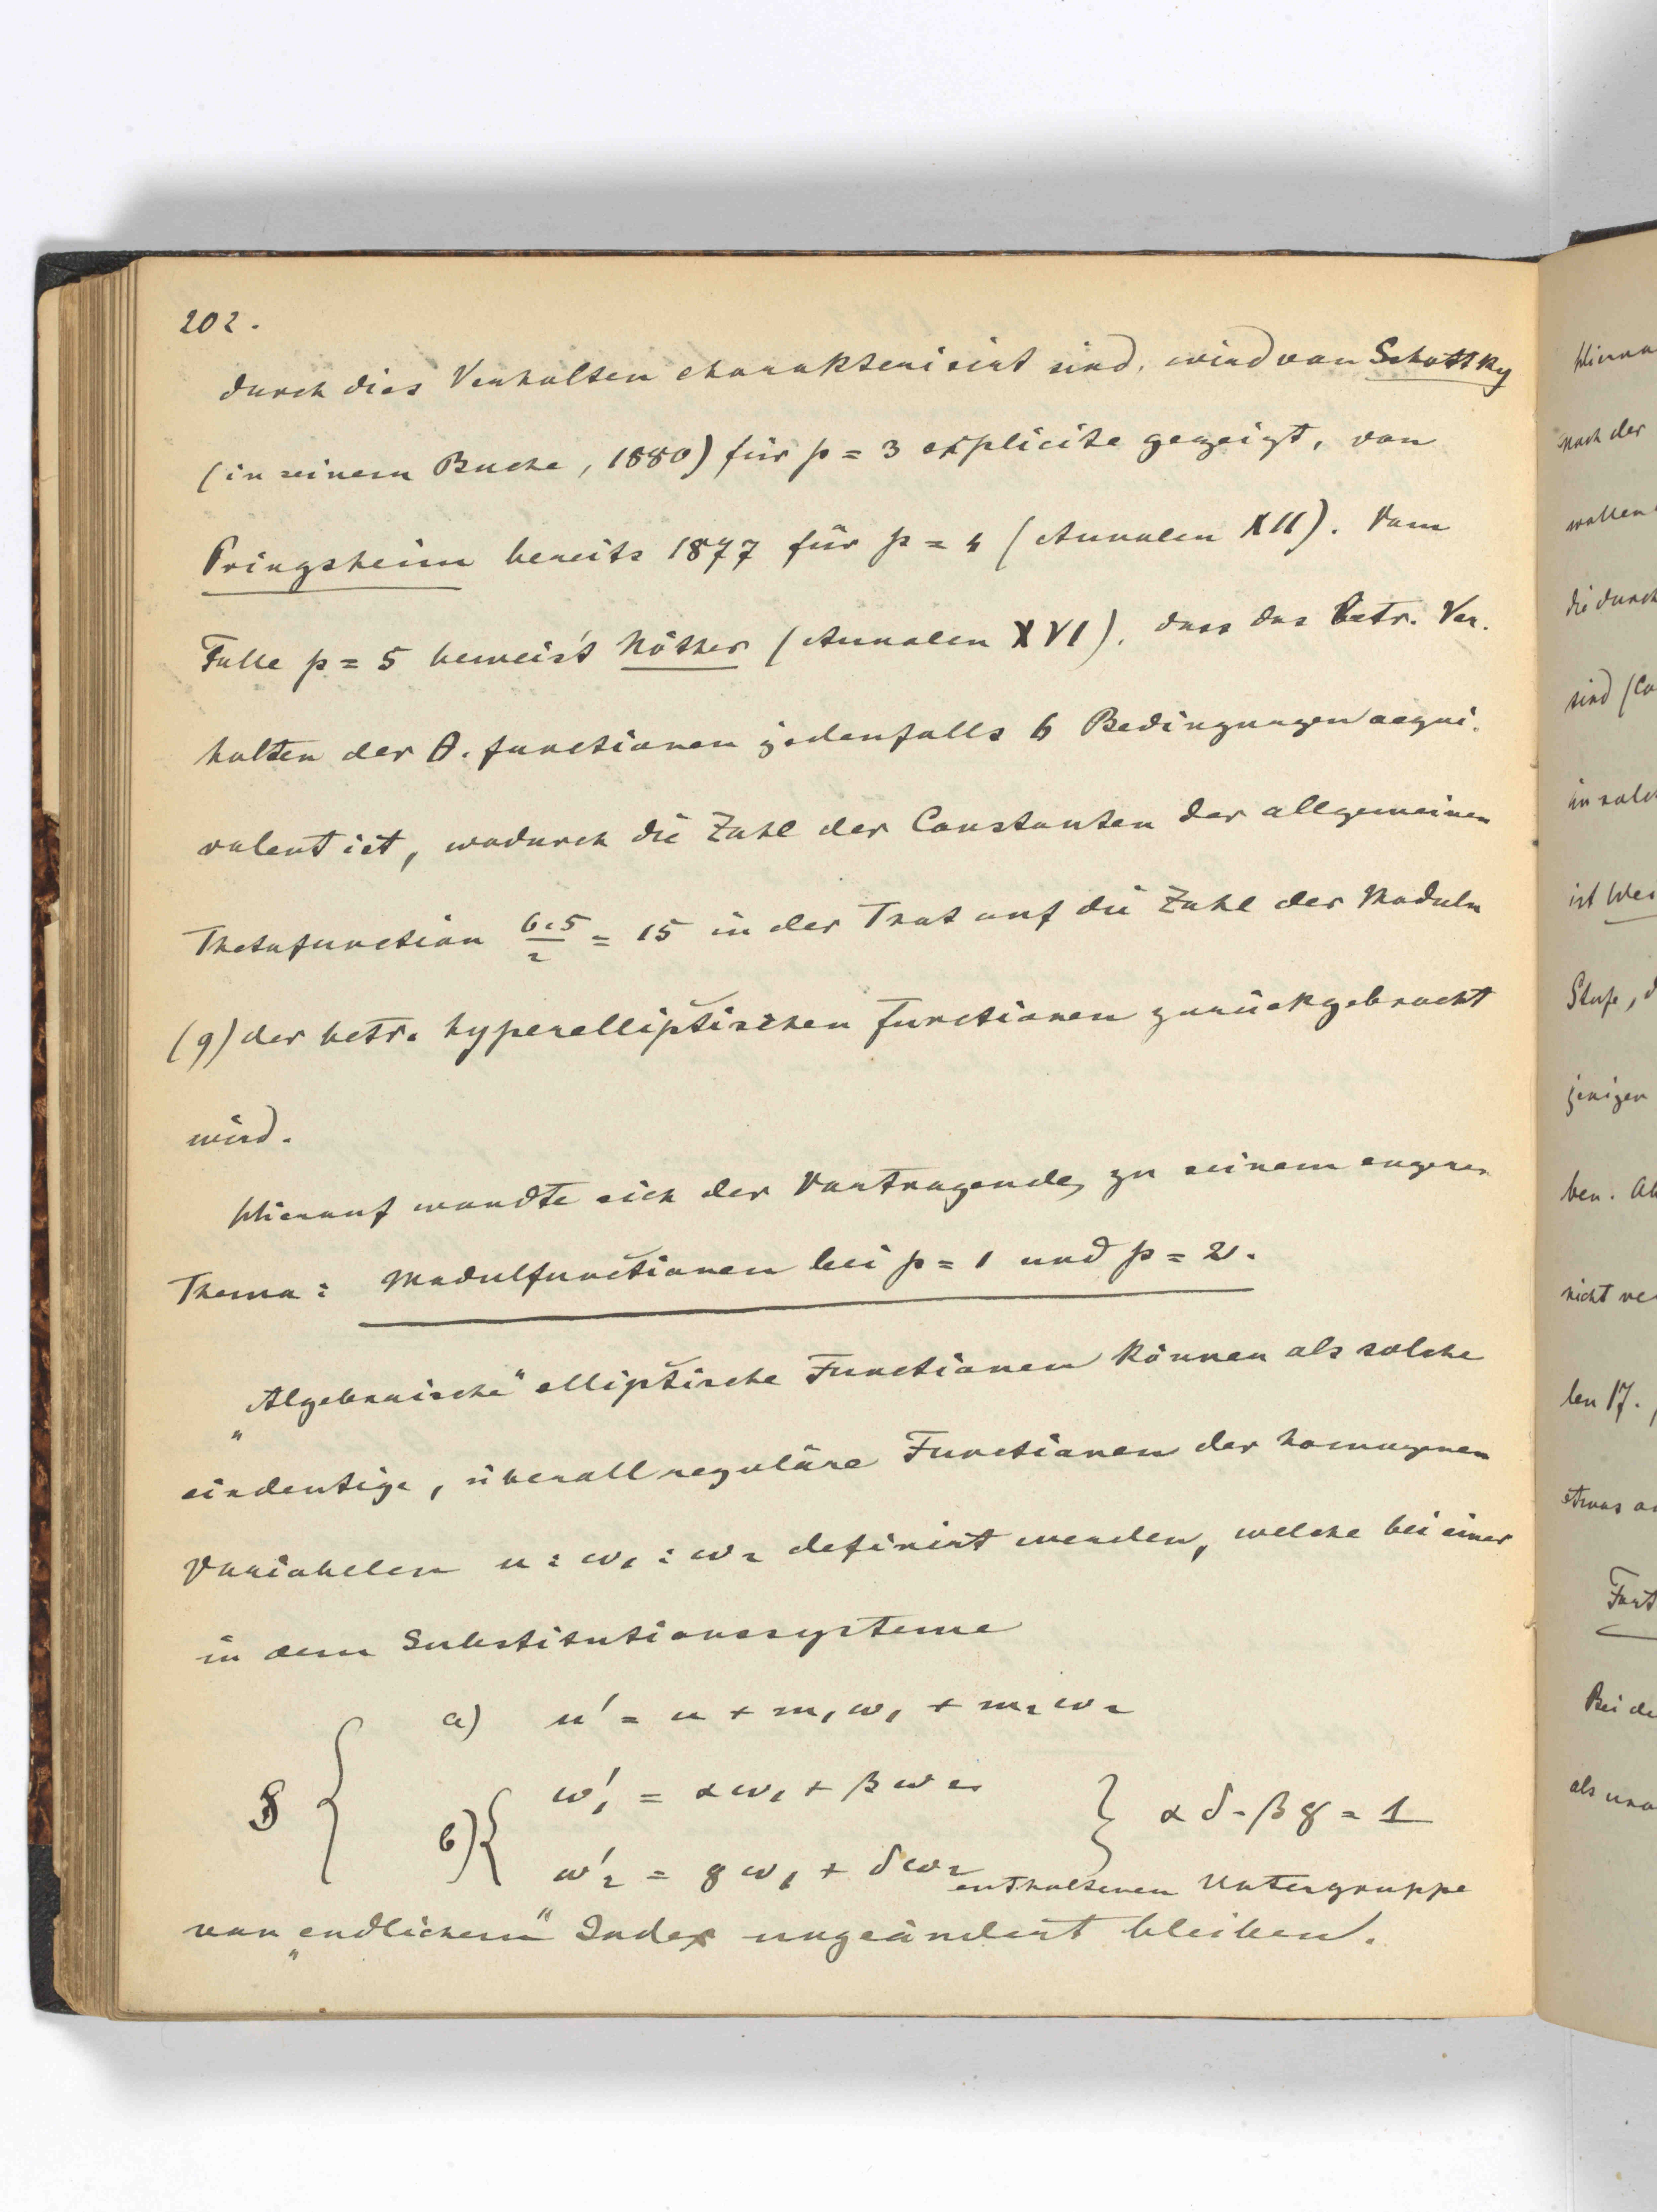 202.
durch dies Verhalten charakterisirt sind, wird von Schottky
(in seinem Buche, 1880) für p = 3 explicite gezeigt, von
Pringsheim bereits 1877 für p = 4 (Annalen XII). Vom
Falle p = 5 beweist Nöther (Annalen XVI), dass das betr. Ver-
halten der θ-functionen jedenfalls 6 Bedingungen aequi-
valent ist, wodurch die Zahl der Constanten der allgemeinen
Thetafunction 6.5/2 = 15 in der That auf die Zahl der Moduln
(9) der betr. hyperelliptischen Functionen zurückgebracht
wird.
Hierauf wandte sich der Vortragende zu seinem engeren
Thema: Modulfunctionen bei p = 1 und p = 2.
„Algebraische“ elliptische Functionen können als solche
eindeutige, überall reguläre Functionen der homogenen
Variabelen u : ω₁ : ω₂ definirt werden, welche bei einer
in dem Substitutionssysteme
a) u' = u + m₁ω₁ + m₂ω₂
b) { ω'₁ = αω₁ + βω₂
ω'₂ = γω₁ + δω₂ } αδ - βγ = 1
enthaltenen Untergruppe
von „endlichem“ Index ungeändert bleiben.
Hierna
nach der
wollen
die durch
sind (Co
in solch
ist Wei
Stufe, d
jenigen
ben. Ab
nicht ve
len 17.
etwas a
Fort
Bei de
als una